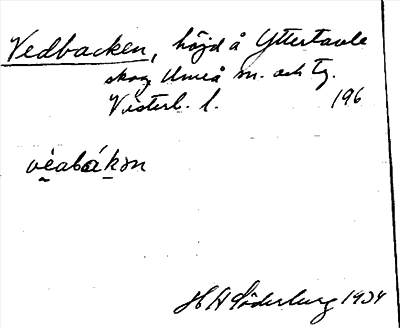 Vedbacken, höjd å Yttertavle
skog Umeå sn. och tg.
Västerb. l. 196
véabákən
H A Söderberg 1934